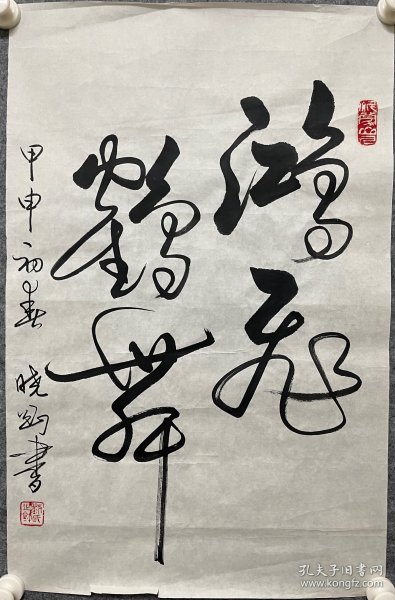 鸿飞
鹤舞
甲申初春 晓钢书
孔夫子旧书网
www.kongfz.com